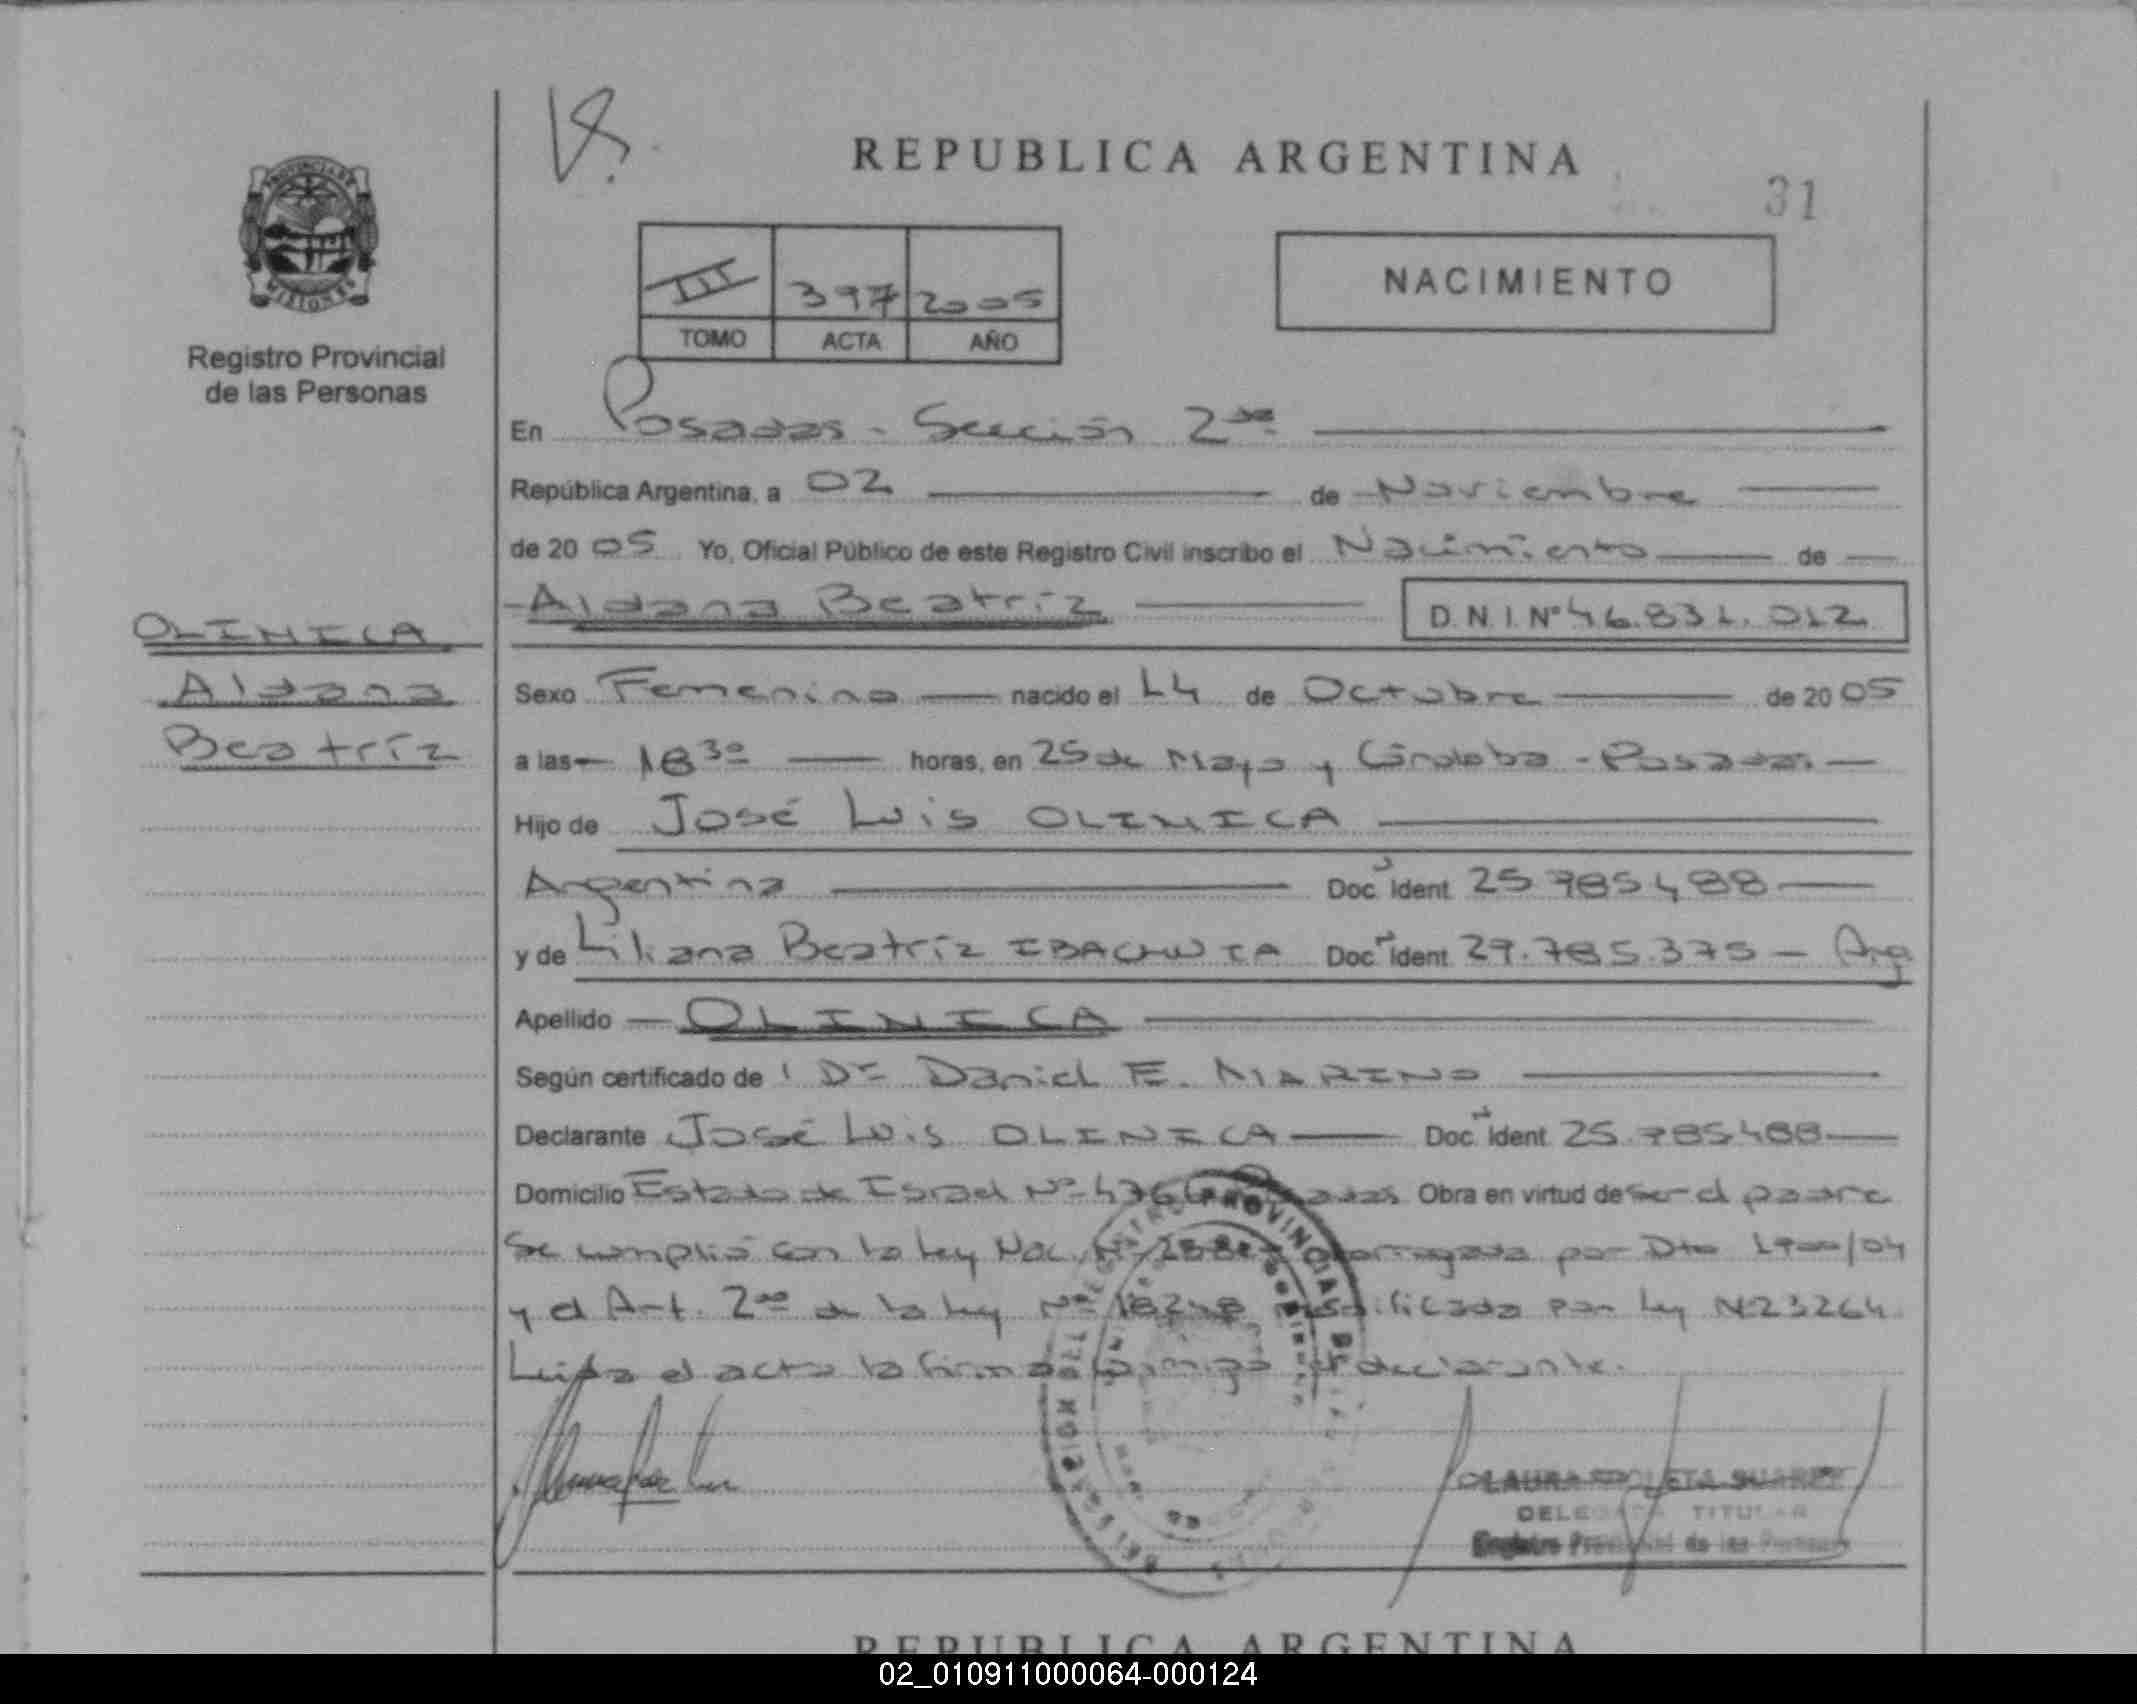 REPUBLICA ARGENTINA
31
PROVINCIA DE
MISIONES
Registro Provincial
de las Personas
III 397 2005
TOMO ACTA AÑO
NACIMIENTO
En Posadas - Sección 2da
República Argentina, a 02 de Noviembre
de 2005 Yo, Oficial Público de este Registro Civil inscribo el Nacimiento de
Aldana Beatríz
D.N.I. Nº 46.831.012
OLINICA
Aldana
Beatríz
Sexo Femenino nacido el 14 de Octubre de 2005
a las 18 30 horas, en 25 de Mayo y Córdoba - Posadas
Hijo de José Luis OLINICA
Argentina Doc. Ident. 25785488
y de Liliana Beatríz Doc. Ident. 29.785.375 - Arg
Apellido OLINICA
Según certificado de Dr Daniel E. MARINO
Declarante José Luis OLINICA Doc. Ident. 25.785488
Domicilio Estado de Israel Nº Obra en virtud de ser el padre
Se cumplió con la Ley Nac. Nº por Dto 1900/04
y el Art. 2do de la Ley Nº 18248 modificada por Ley Nº23264
Leída el acta la firma conmigo el declarante.
REGISTRO PROVINCIAL DE
CLAURA SUAREZ
DELEGADA TITULAR
Registro Provincial de las Personas
REPUBLICA ARGENTINA
02_010911000064-000124